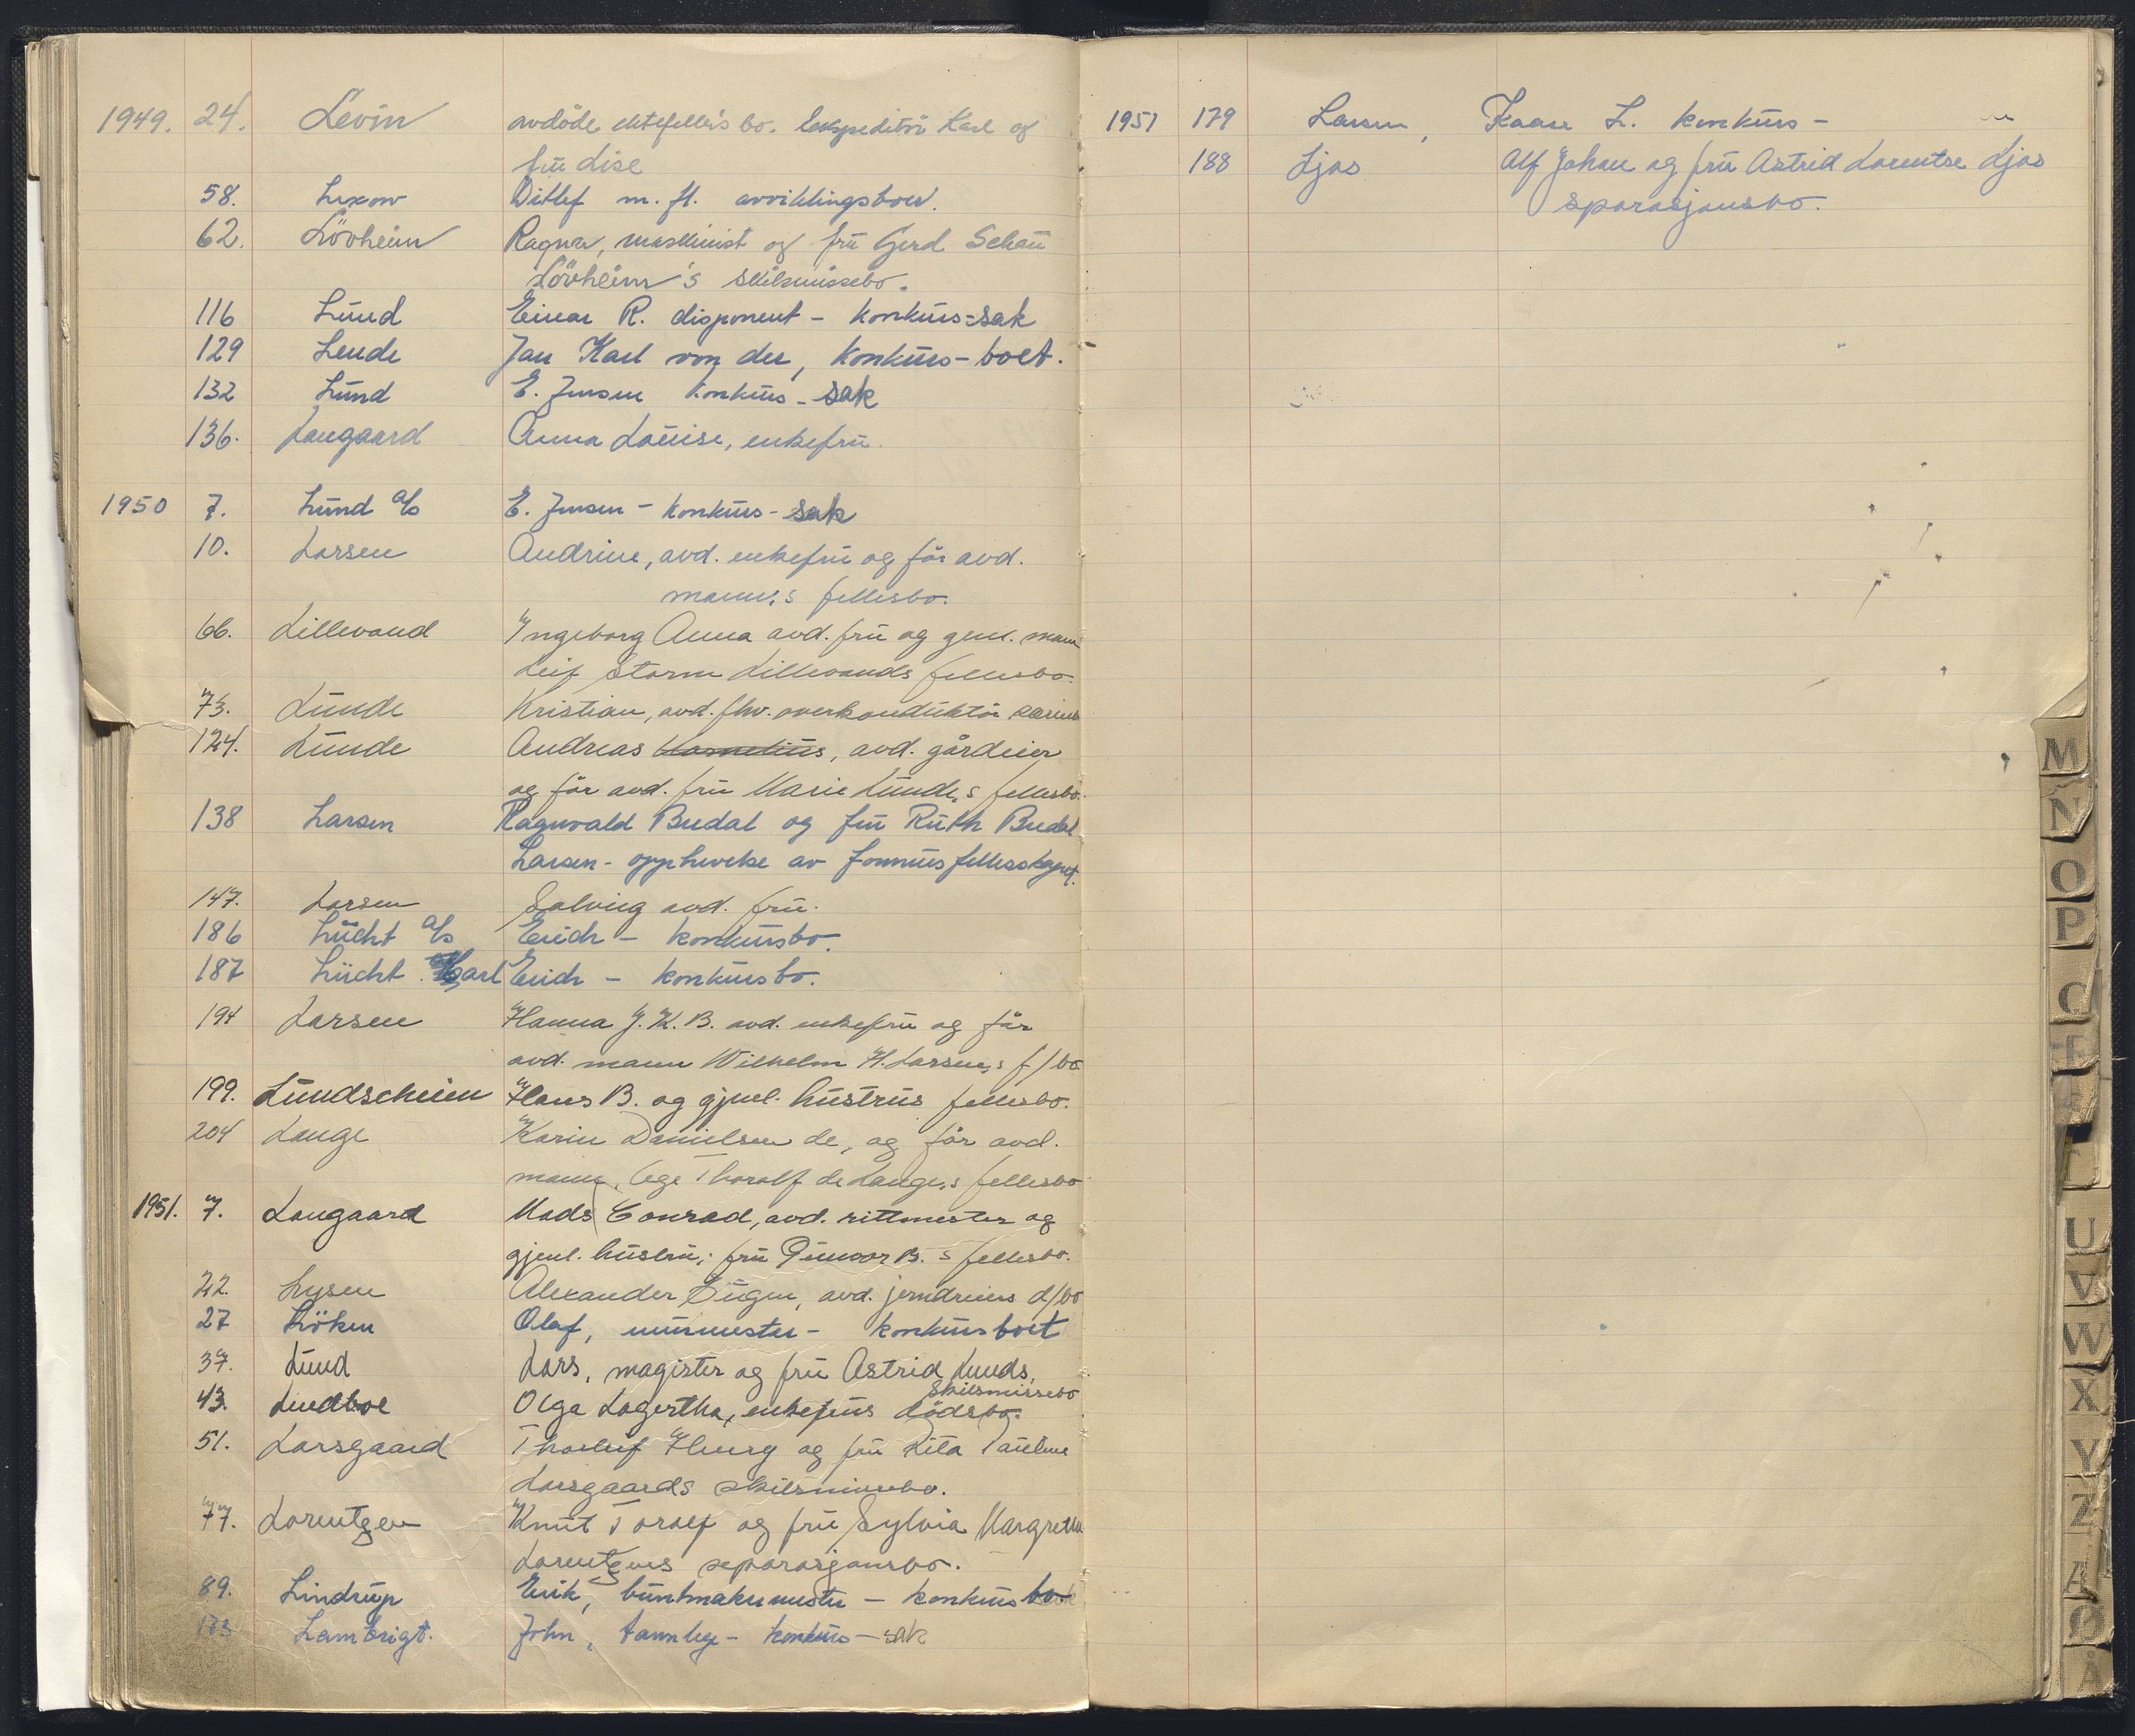 1949. 24. Levin avdöde ektefelle's bo. Ekspeditör Karl og
fru Lise
58. Luxow Ditlef m. fl. avviklingsboer.
62. Lövheim Ragnar, maskinist og fru Gerd Schau
Lövheim's skilsmissebo.
116 Lund Einar R. disponent - konkurs=sak
129 Lende Jan Karl von der, konkurs-boet.
132 Lund E. Jensen konkurs-sak
136. Langaard Anna Louise, enkefru.
1950 7. Lund A/S E. Jensen - konkurs-sak
10. Larsen Andrine, avd. enkefru og för avd.
mann,s fellesbo.
66. Lillevand Ingeborg Anna avd. fru og genl. mann
Leif Storm Lillevands fellesbo.
73. Lunde Kristian, avd. fhv. overkonduktör
124. Lunde Andreas Kornelius, avd. gårdeier
og för avd. fru Marie Lunde,s fellesbo.
138 Larsen Ragnvald Budal og fru Ruth Budal
Larsen - opphevelse av formuesfellesskapet.
147. Larsen Solveig avd. fru.
186 Lücht A/S Erich - konkursbo.
187 Lücht Karl Erich - konkursbo.
194 Larsen Hanna J. K. B. avd. enkefru og för
avd. mann Wilhelm H. Larsen,s f/bo
199. Lundscheien Hans B. og gjenl. hustrus fellesbo.
204 Lange Karin Danielsen de, og för avd.
mann, lege Thoralf de Lange,s fellesbo
1951. 7. Langaard Mads Conrad, avd. rittmester og
gjenl. hustru; fru Gunvor B.'s fellesbo.
22. Lysen Alexander Eugen, avd. jerndreiers d/bo
27 Löken Olaf, murmester - konkursboet
37. Lund Lars, magister og fru Astrid Lunds,
skilsmissebo
43. Lundboe Olga Lagertha, enkefrus dödsbo.
51. Larsgaard Thorleif Henry og fru Lita Pauline
Larsgaards skilsmissebo.
77. Lorentzen Knut Toralf og fru Sylvia Margrethe
Lorentzens separasjonsbo.
89. Lindrup Erik, buntmakermester - konkursbo
103 Lambrigt. John, tannlege - konkurs-sak
1951 179 Larsen, Kaare L. konkurs-
188 Ljos Alf Johan og fru Astrid Lorentse Ljos
sparasjonsbo.
M
N
O
P
U
V
W
X
Y
Z
Æ
Ø
Å